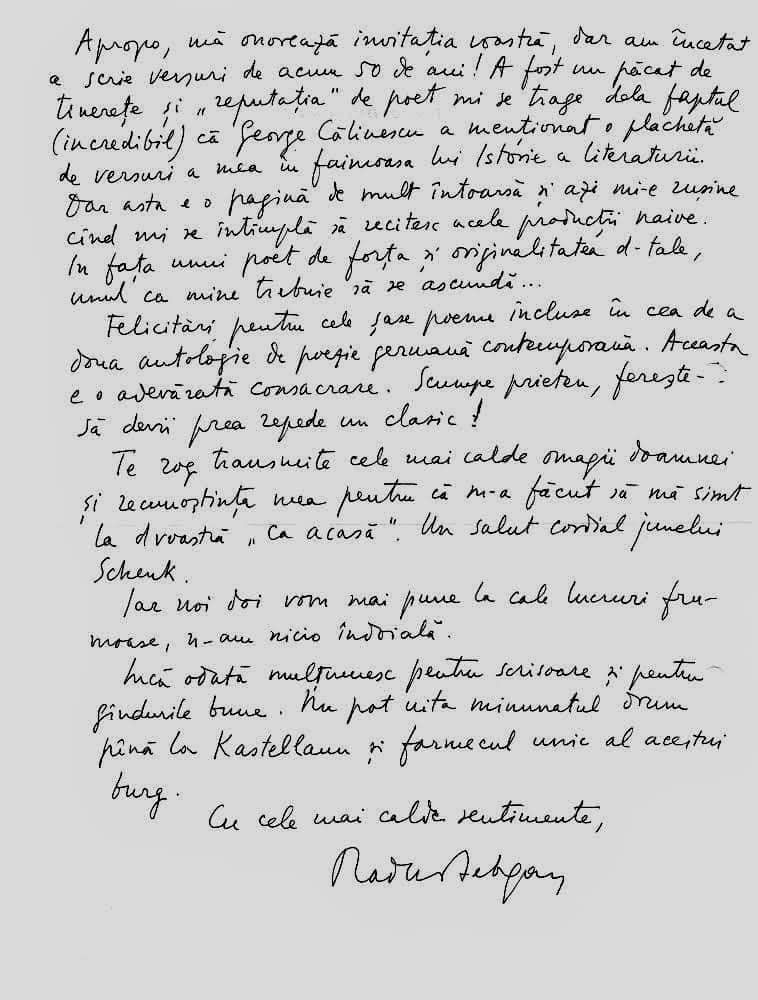 Apropo, mă onorează invitația voastră, dar am încetat
a scrie versuri de acum 50 de ani! A fost un păcat de
tinerețe și „reputația" de poet mi se trage dela faptul
(incredibil) că George Călinescu a menționat o plachetă
de versuri a mea în faimoasa lui Istorie a literaturii.
Dar asta e o pagină de mult întoarsă și azi mi-e rușine
cînd mi se întîmplă să recitesc acele producții naive.
In fața unui poet de forța și originalitatea d-tale,
unul ca mine trebuie să se ascundă...
Felicitări pentru cele șase poeme incluse în cea de a
doua antologie de poezie germană contemporană. Aceasta
e o adevărată consacrare. Scumpe prieten, ferește-
să devii prea repede un clasic!
Te rog transmite cele mai calde omagii doamnei
și recunoștința mea pentru că m-a făcut să mă simt
la dvoastră „ca acasă". Un salut cordial junelui
Schenk.
Iar noi doi vom mai pune la cale lucruri fru-
moase, n-am nicio îndoială.
Incă odată mulțumesc pentru scrisoare și pentru
gîndurile bune. Nu pot uita minunatul drum
pînă la Kastellaun și farmecul unic al acestui
burg.
Cu cele mai calde sentimente,
Radu